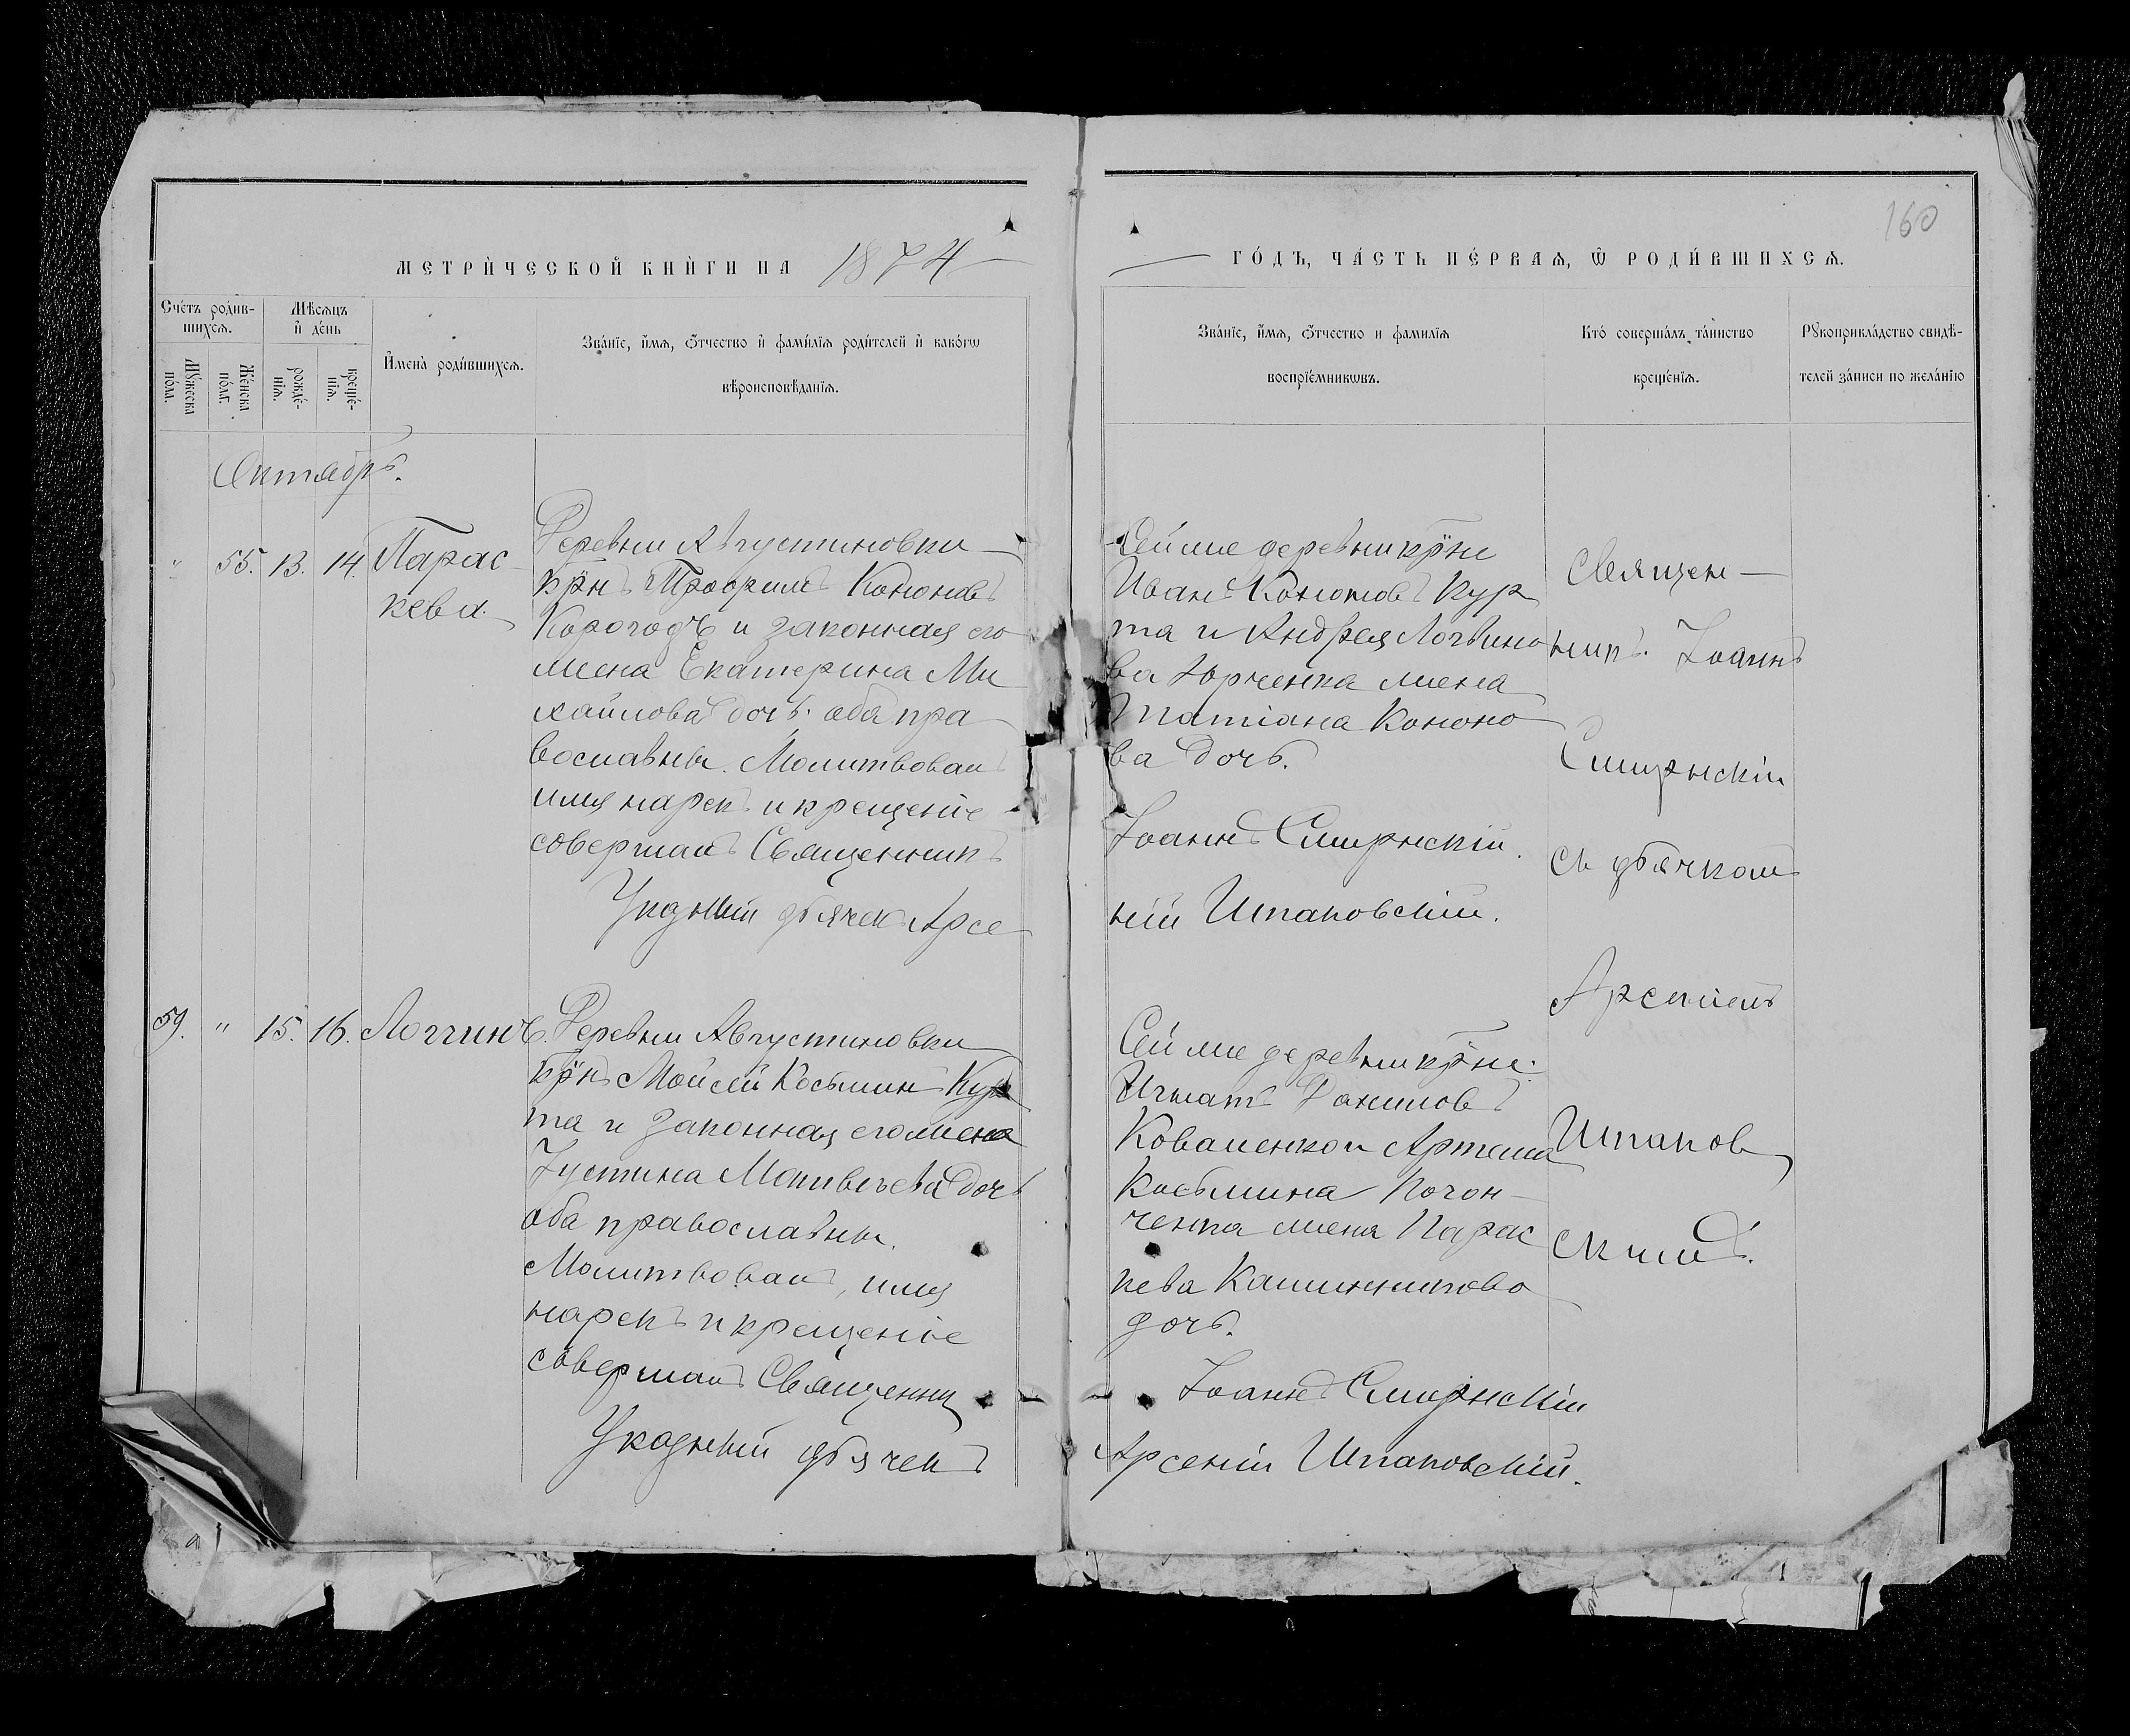 160
МЕТРИ́ЧЕСКОЙ КНИ́ГИ НА 1874
ГО́ДЪ, ЧА́СТЬ ПЕ́РВАѦ, Ѿ РОДИ́ВШИХСѦ.
Сче́тъ роди́в-
шихсѧ.
Мѣ́сѧцъ
и҆ де́нь
Мꙋ́жеска
по́ла.
Же́нска
по́ла.
рожде́-
нїѧ.
креще́-
нїѧ.
И҆мена̀ роди́вшихсѧ.
Зва́нїе, и҆́мѧ, ѻ҆́тчество и҆ фами́лїѧ роди́телей и҆ како́гѡ
вѣроисповѣ́данїѧ.
Зва́нїе, и҆́мѧ, ѻ҆́тчество и фамилїѧ
воспрїе́мникѡвъ.
Кто́ соверша́лъ та́инство
креще́нїѧ.
Рꙋкоприкла́дство свидѣ́-
телей за́писи по жела́нїю
Октябрь.
" 55. 13. 14. Парас
кева.
Деревни Августиновки
крн̃ъ Трофимъ Кононовъ
Корогодъ и законная его
жена Екатерина Ми
хайлова дочь. оба пра
вославны. Молитвовалъ
имя нарекъ и крещеніе
совершалъ Священникъ
Указный дьячекъ Арсе
Сейже деревни крн̃е
Иванъ Кононовъ Кур
та и Андрея Логвино
ва Юрченка жена
Татіана Кононо
ва дочь.
Іоаннъ Смирнскій.
ній Шпаковскій.
Священ-
никъ Іоаннъ
Смирнскій
съ дьячкомъ
Арсеніемъ
Шпаков
скимъ.
59. " 15. 16. Логгинъ.
Деревни Августиновки
крн̃ъ Мойсей Косьминъ Кур
та и законная его жена
Іустина Матвѣева дочь
оба православны.
Молитвовалъ, имя
нарекъ и крещеніе
совершалъ Священни
Указный дьячекъ
Сейже деревни крн̃е:
Игнатъ Даниловъ
Коваленко и Артема
Косьмина
ченка жена Парас
кева Калинникова
дочь.
Іоаннъ Смирнскій
Арсеній Шпаковскій.